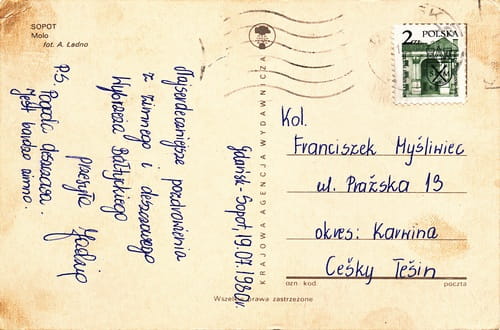 SOPOT
Molo
fot. A. Ładno
Gdańsk-Sopot, 19.07.1980r.
Najserdeczniejsze pozdrowienia
z zimnego i deszczowego
Wybrzeża Bałtyckiego
przesyła
P.S Pogoda deszczowa.
Jest bardzo zimno.
KRAJOWA AGENCJA WYDAWNICZA
2 ZŁ POLSKA
Kol.
Franciszek Myśliwiec
ul. Pražska 13
okres: Karwina
Cešky Tešin
ozn kod.
poczta
Wszelkie prawa zastrzeżone